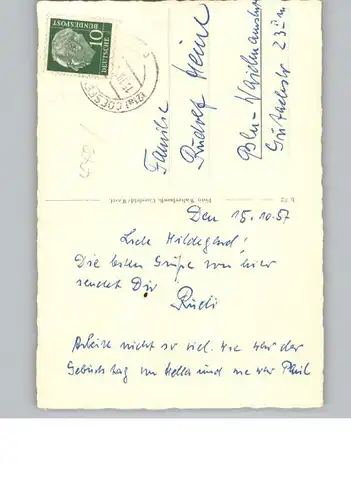 10
DEUTSCHE
BUNDESPOST
(21a) COESFE
Familie
Rudolf Heine
Bln-Waidmannslust
23
Foto Kaltenbach, Coesfeld/Westf.
Den 15.10.57
Liebe Hildegard!
Die besten Grüße von hier
sendet Dir
Rudi
Arbeite nicht so viel. Wie war der
Geburtstag von Hella und wie war